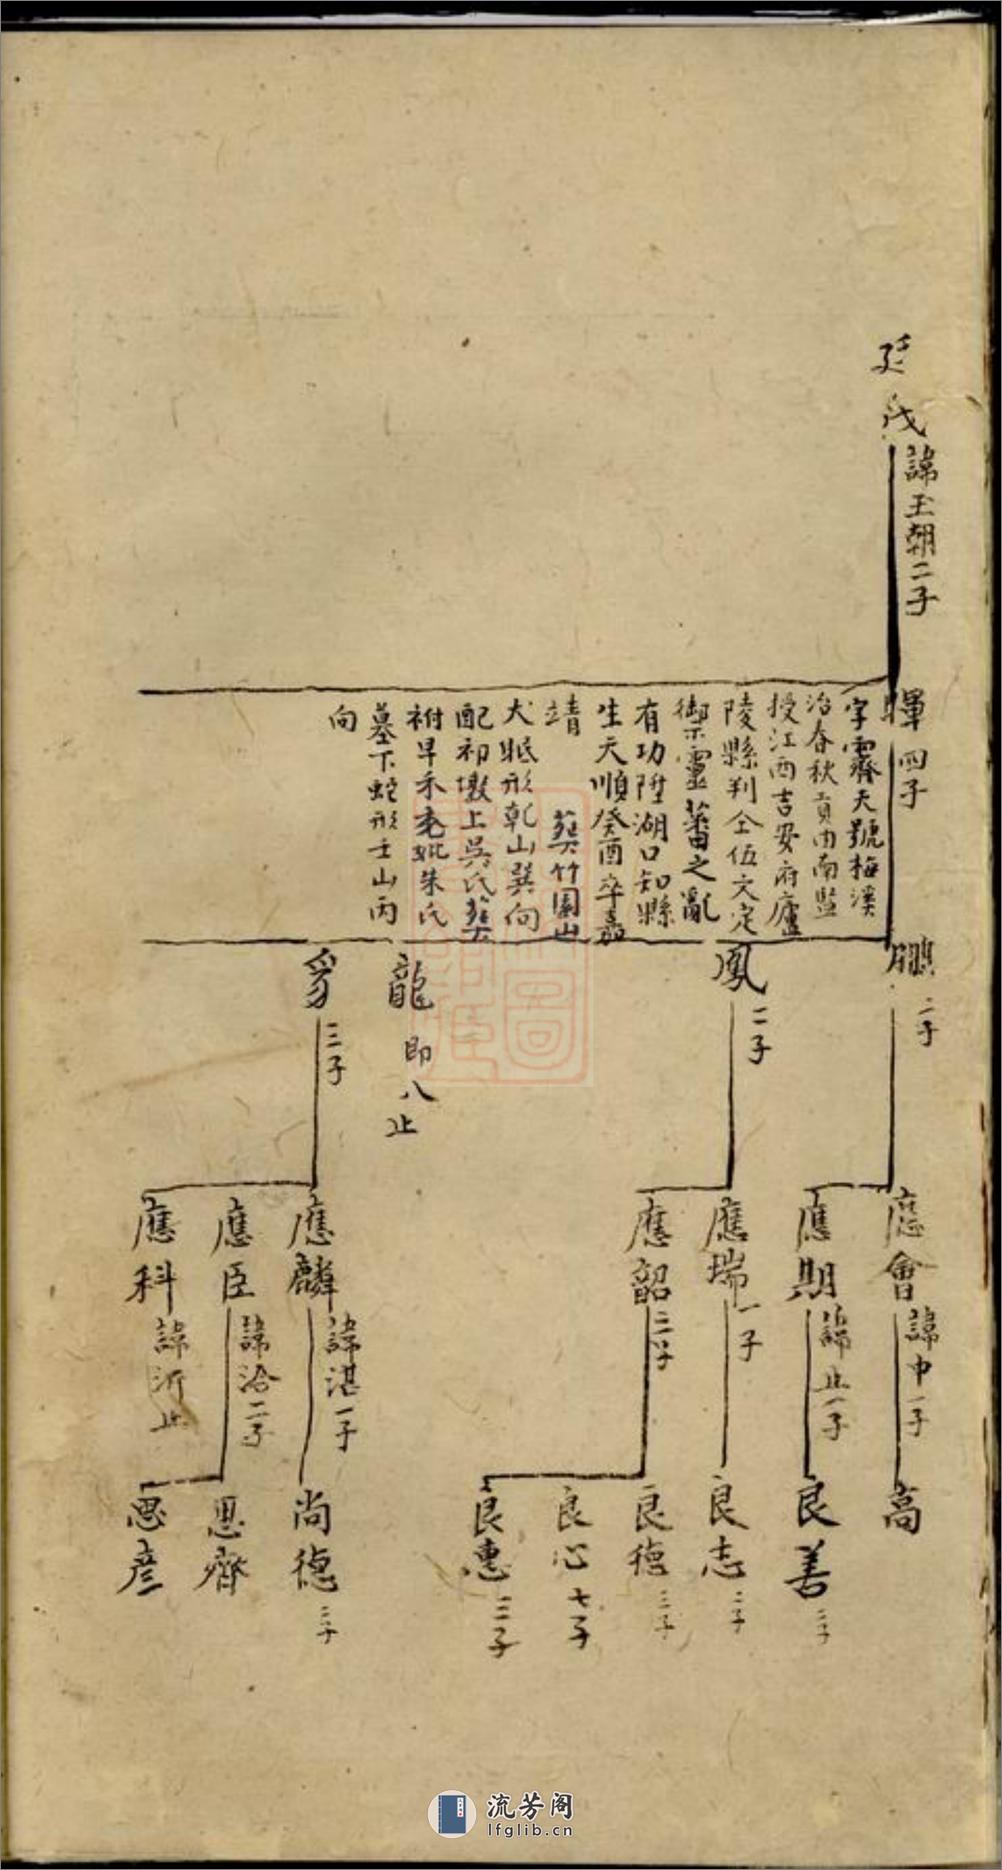 諱玉朝二子
暉 四子
字霽天號梅溪
治春秋貢由南監
授江西吉安府廬
陵縣判仝伍文定
禦寧藩之亂
有功陞湖口知縣
生天順癸酉卒嘉
靖 葬竹園山
犬眠形乾山巽向
配初墩上吳氏葬
祔旱禾 朱氏
墓下蛇形壬山丙
向
鵬 二子
鳳 二子
龍 即八止
豸 三子
應會 諱中一子
應期 諱止一子
應瑞 一子
應韶 三子
應麟 諱湛一子
應臣 諱洽二子
應科 諱沂止
高
良善 三子
良志 二子
良德 三子
良心 七子
良惠 三子
尚德 三子
思齊
思彥
流芳阁
lfglib.cn